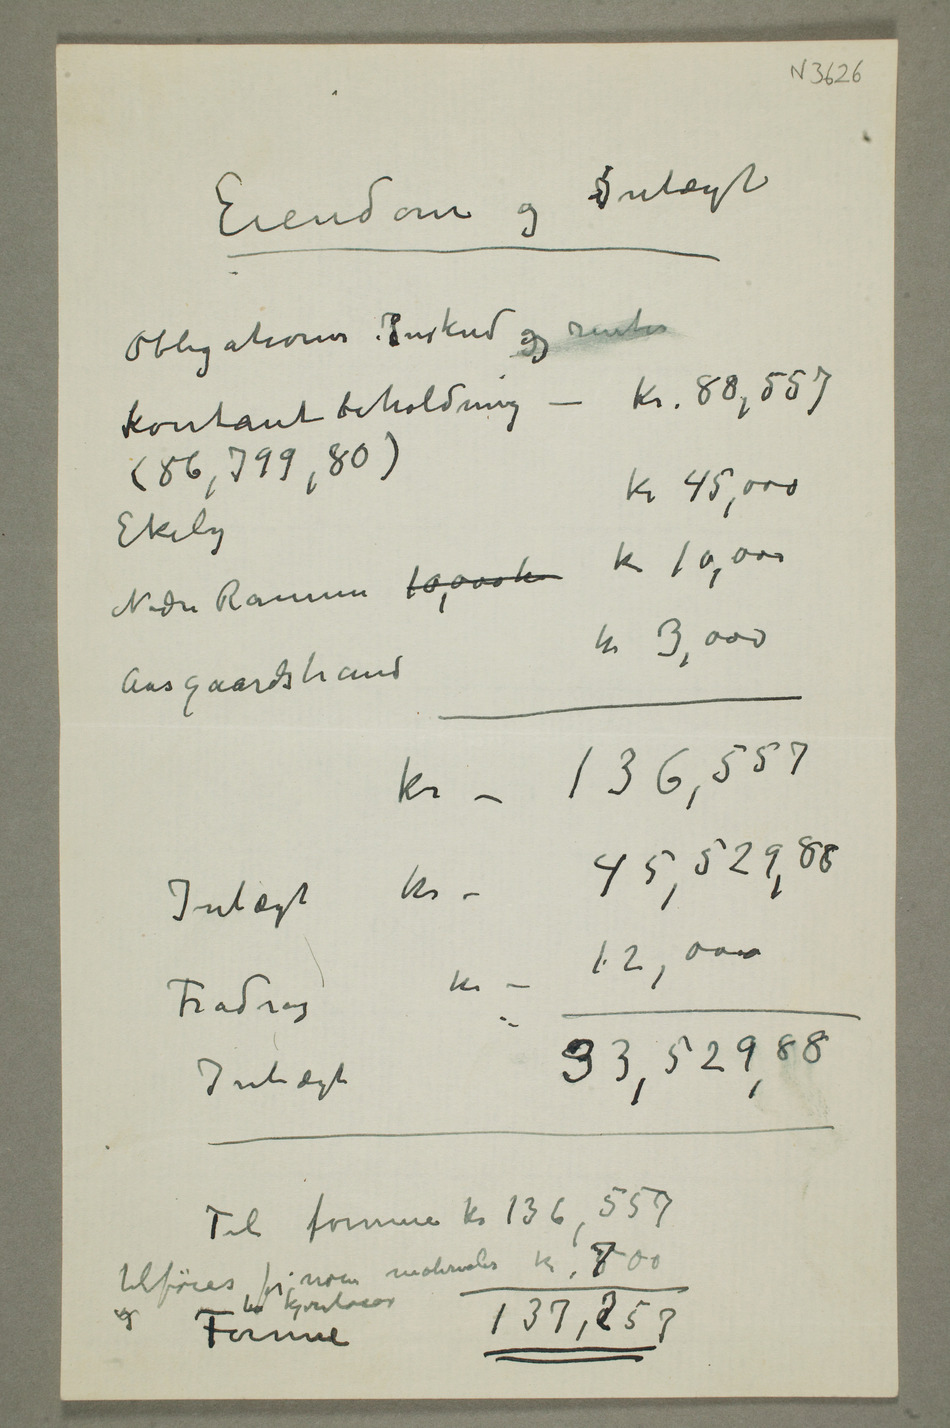 N 3626
Eiendom og Intægt
Obligationer Inskud og renter
kontant beholdning — kr. 88,557
(86,799,80)
kr 45,000
Ekely
Nedre Ramme 10,000 kr kr 10,000
kr 3,000
Aasgaardstrand
kr – 136,557
Intægt kr – 45,529,88
Fradrag kr – 12,000
Intægt 33,529,88
Til formue kr 136,557
tilføies for noen materialer kr. 700
og
Formue 137,257